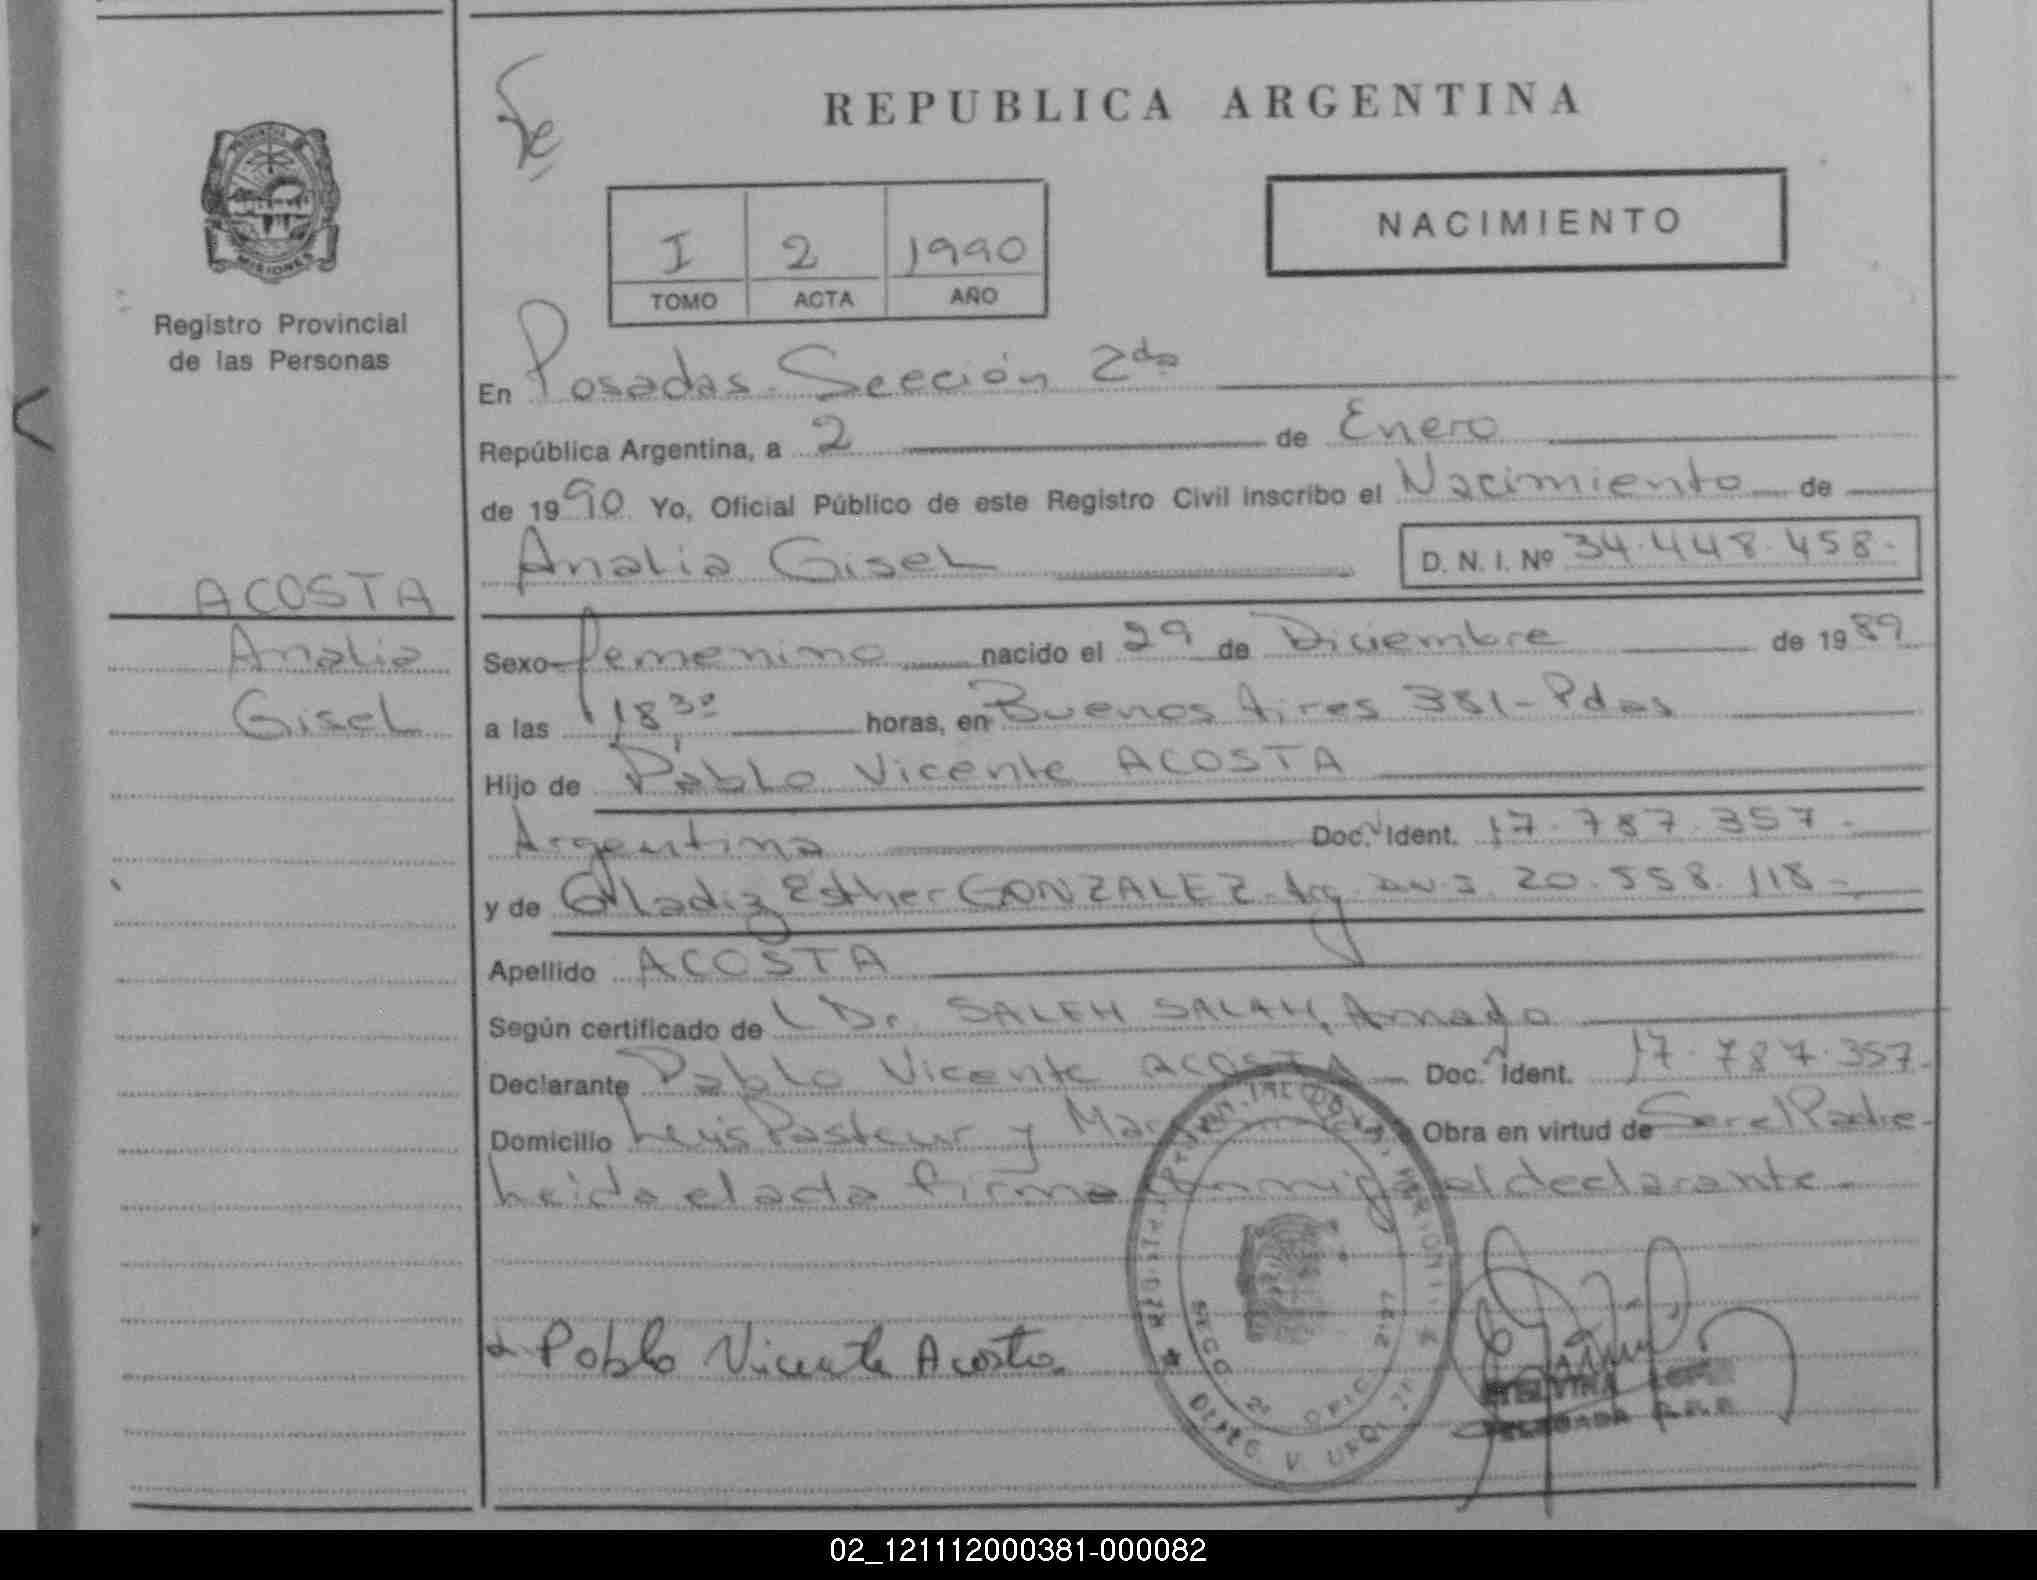 REPUBLICA ARGENTINA
PROVINCIA
MISIONES
Registro Provincial
de las Personas
NACIMIENTO
I 2 1990
TOMO ACTA AÑO
En Posadas-Sección 2da
República Argentina, a 2 de Enero
de 1990 Yo, Oficial Público de este Registro Civil inscribo el Nacimiento de
Analia Gisel D. N. I. Nº 34.448.458.
ACOSTA
Analia
Gisel
Sexo femenino nacido el 29 de Diciembre de 1989
a las 18,30 horas, en Buenos Aires 381-Pdas
Hijo de Pablo Vicente ACOSTA
Argentina Doc. Ident. 17.787.357.
y de Gladiz Esther GONZALEZ-Arg. 20.558.118-
Apellido ACOSTA
Según certificado de Dr. SALEH SALAH, Amado
Declarante Pablo Vicente ACOSTA Doc. Ident. 17.787.357-
Domicilio Luis Pasteur y Obra en virtud de Ser el Padre-
Leida el acta firma el declarante-
Pablo Vicente Acosta
SECC 2ª OFIC.
DELEGADA
02_121112000381-000082